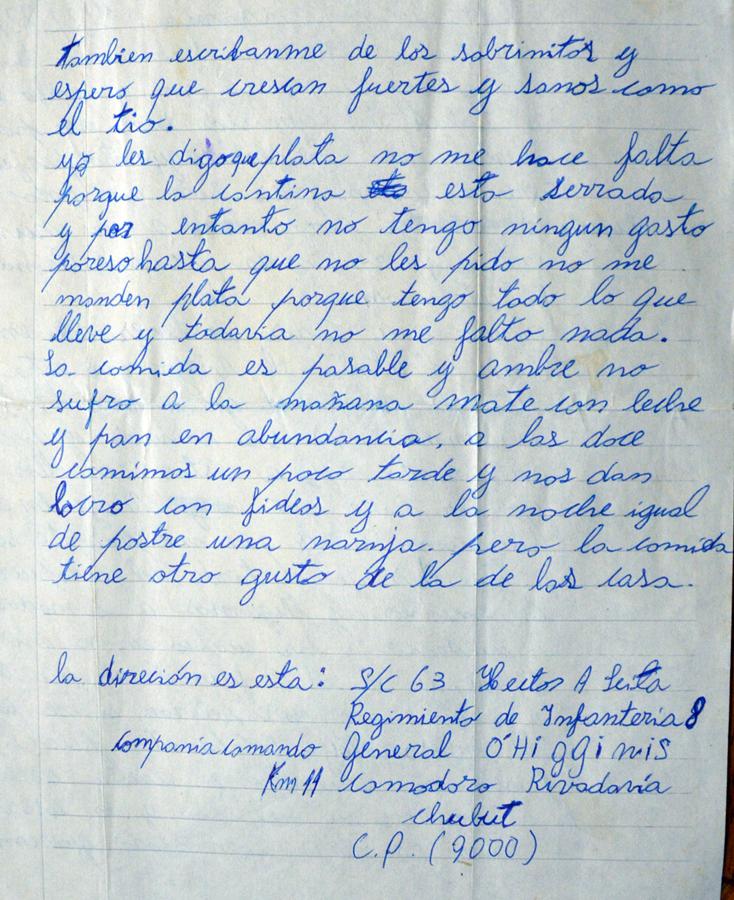 tambien escribanme de los sobrinitos y
espero que crescan fuertes y sanos como
el tio.
yo les digo que plata no me hace falta
porque la cantina esta serrada
y por entanto no tengo ningun gasto
poreso hasta que no les pido no me
manden plata porque tengo todo lo que
lleve y todavia no me falto nada.
La comida es pasable y ambre no
sufro a la mañana mate con leche
y pan en abundancia. a las doce
comimos un poco tarde y nos dan
locro con fideos y a la noche igual
de postre una narnja. pero la comida
tiene otro gusto de la de las casa.
la direción es esta: S/C 63 Hector A
Regimiento de Infanteria 8
compania comando General O'Higginis
Km 11 comodoro Rivadavia
chubut
C.P. (9000)